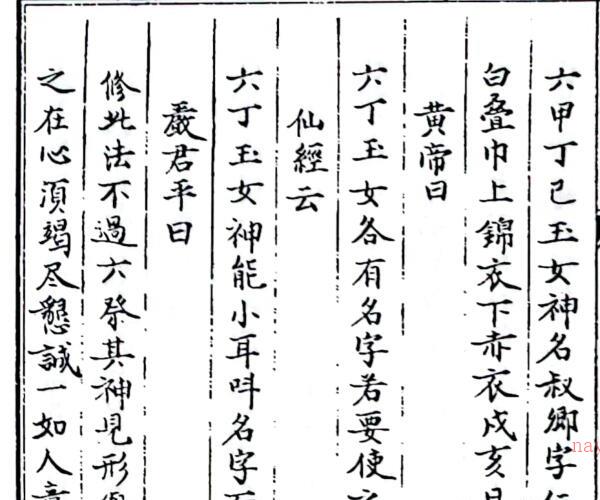 六甲丁巳玉女神名叔卿字
白疊巾上錦衣下赤衣戌亥日
黃帝曰
六丁玉女各有名字若要使
仙經云
六丁玉女神能小耳呌名字
嚴君平曰
修此法不過六祭其神見形
之在心須竭尽懇誠一如人意